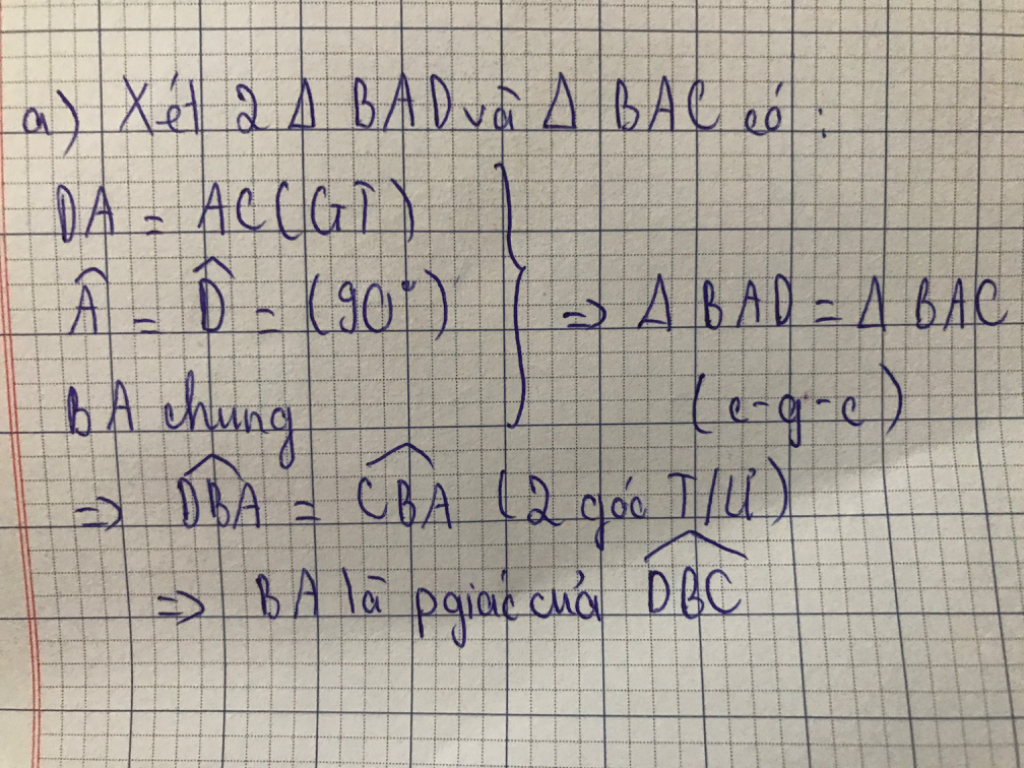 a) Xét 2 Δ BAD và Δ BAC có :
DA = AC (GT)
Â = D̂ = (90°)
BA chung
} => Δ BAD = Δ BAC
(c-g-c)
=> DBA^ = CBA^ (2 góc T/Ư)
=> BA là pgiác của DBC^